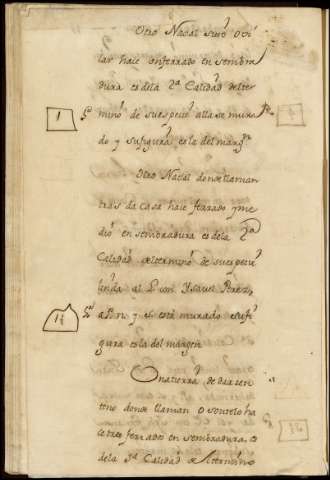 Otro Nacal suyo
lar hace un ferrado en sembra
dura es dela 2ª Calidad del ter
1 mino de su espeçie allase mura
do y su figura es la del margn
Otro Nacal donse llaman
tras da casa hace ferrado y me
dio en sembradura es de la 2ª
Calidad de termino de su espeçie
linda al con Ysavel Perez,
1½ y está murado su fi
gura es la del margen
Una tierra de dar cen
teno donde llaman O souto ha
ce tres ferrados en sembradura es
dela 3ª Calidad de el termino